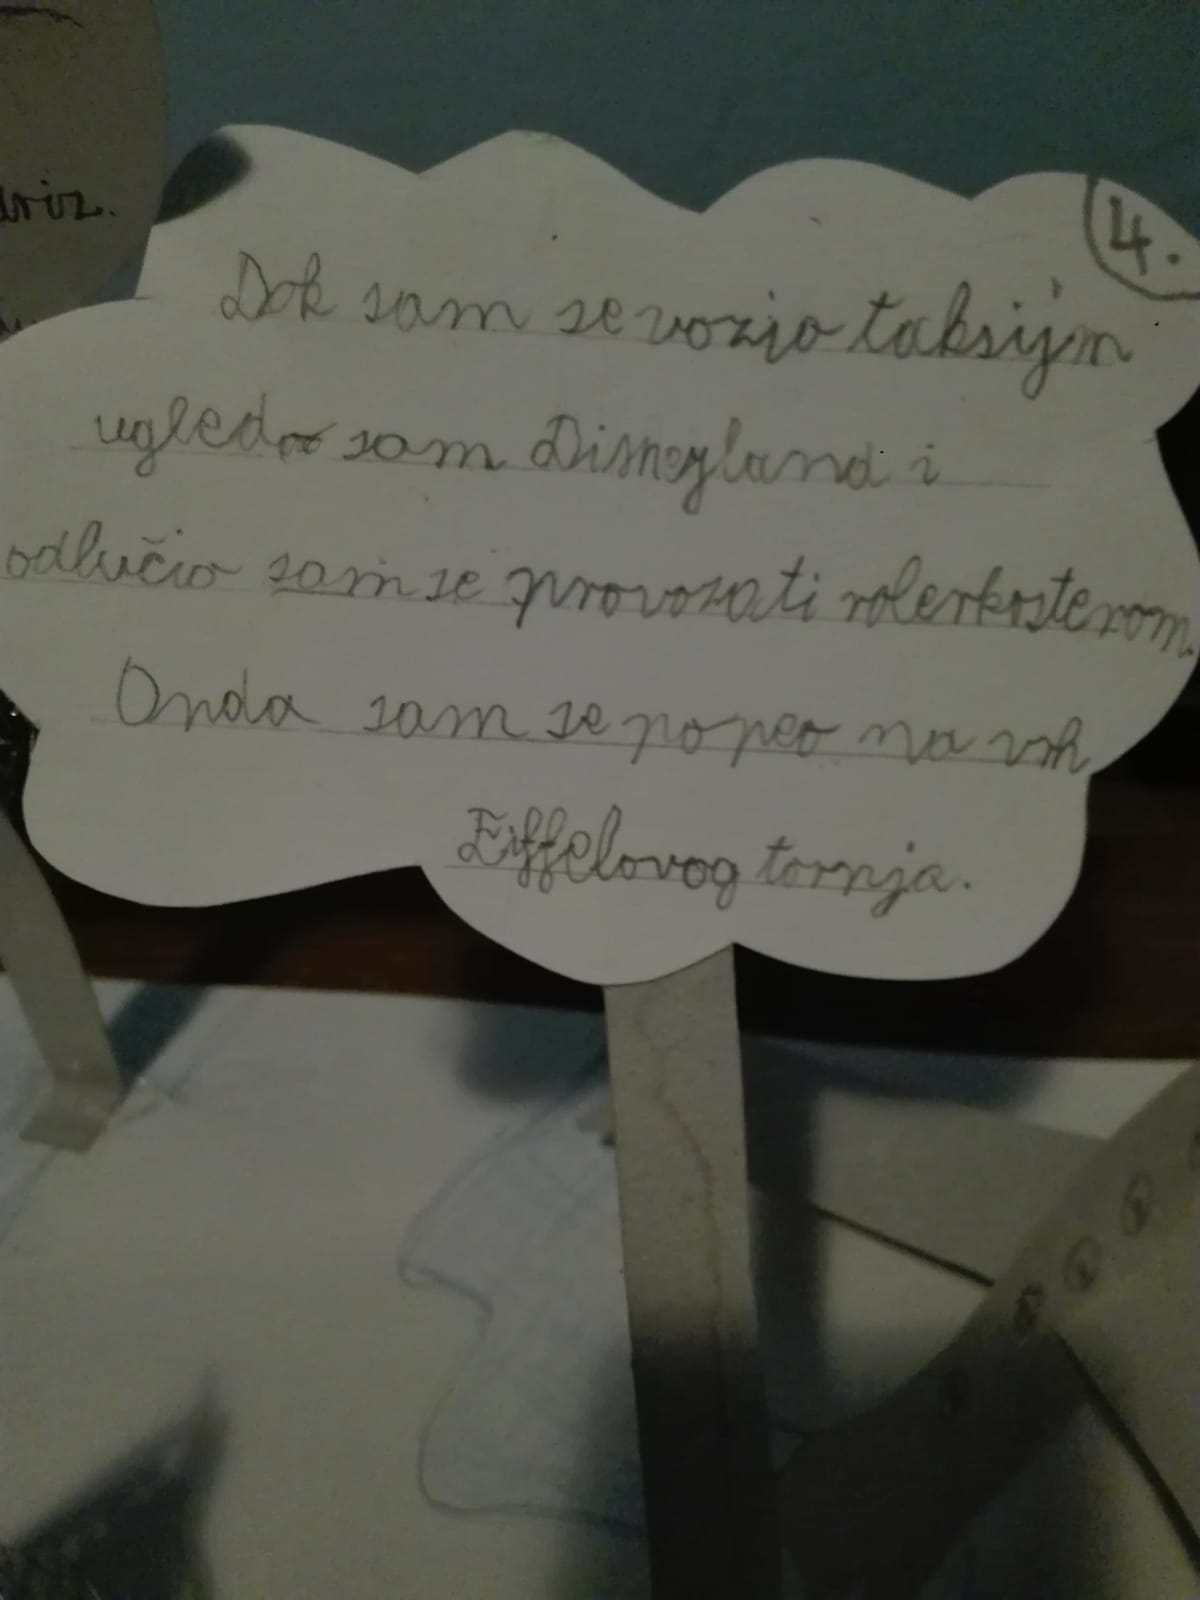 ariz.
4.
Dok sam se vozio taksijm
ugledao sam Disneyland i
odlučio sam se provozati rolerkosterom.
Onda sam se popeo na vrh
Eiffelovog tornja.